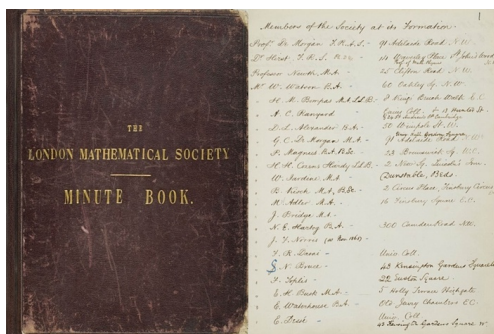 THE
LONDON MATHEMATICAL SOCIETY
MINUTE BOOK.
1
Members of the Society at its Formation
Prof. De Morgan F.R.A.S. 91 Adelaide Road N.W.
Dr Hirst F.R.S. 14 Waverley Place St John's Wood
Professor Newth M.A. 25 Clifton Road N.W.
Mr W. Watson B.A. 60 Oakley Sq. N.W.
H. M. Bompas M.A. LL.B. 8 King's Bench Walk E.C.
A. C. Ranyard
D. L. Alexander B.A. 50 Wimpole St. W.
G. C. De Morgan M.A. 91 Adelaide Road
P. Magnus B.A. B.Sc. 28 Brunswick Sq. W.C.
H. H. Cozens Hardy LL.B. 2 New Sq. Lincoln's Inn
W. Jardine M.A. Dunstable, Beds.
B. Kisch M.A. B.Sc. 2 Circus Place, Finsbury Circus
M. Adler M.A. 16 Finsbury Square E.C.
J. Bridge M.A.
N. E. Hartog B.A. 300 Camden Road
J. T.
F. R. Univ. Coll.
N. 43 Kensington Gardens Square
F. 22 Euston Square
E. H. Busk M.A. 5 Holly Terrace Highgate
C. Waterhouse B.A. Old Jewry Chambers E.C.
C. Univ. Coll.
43 Kensington Gardens Square W.